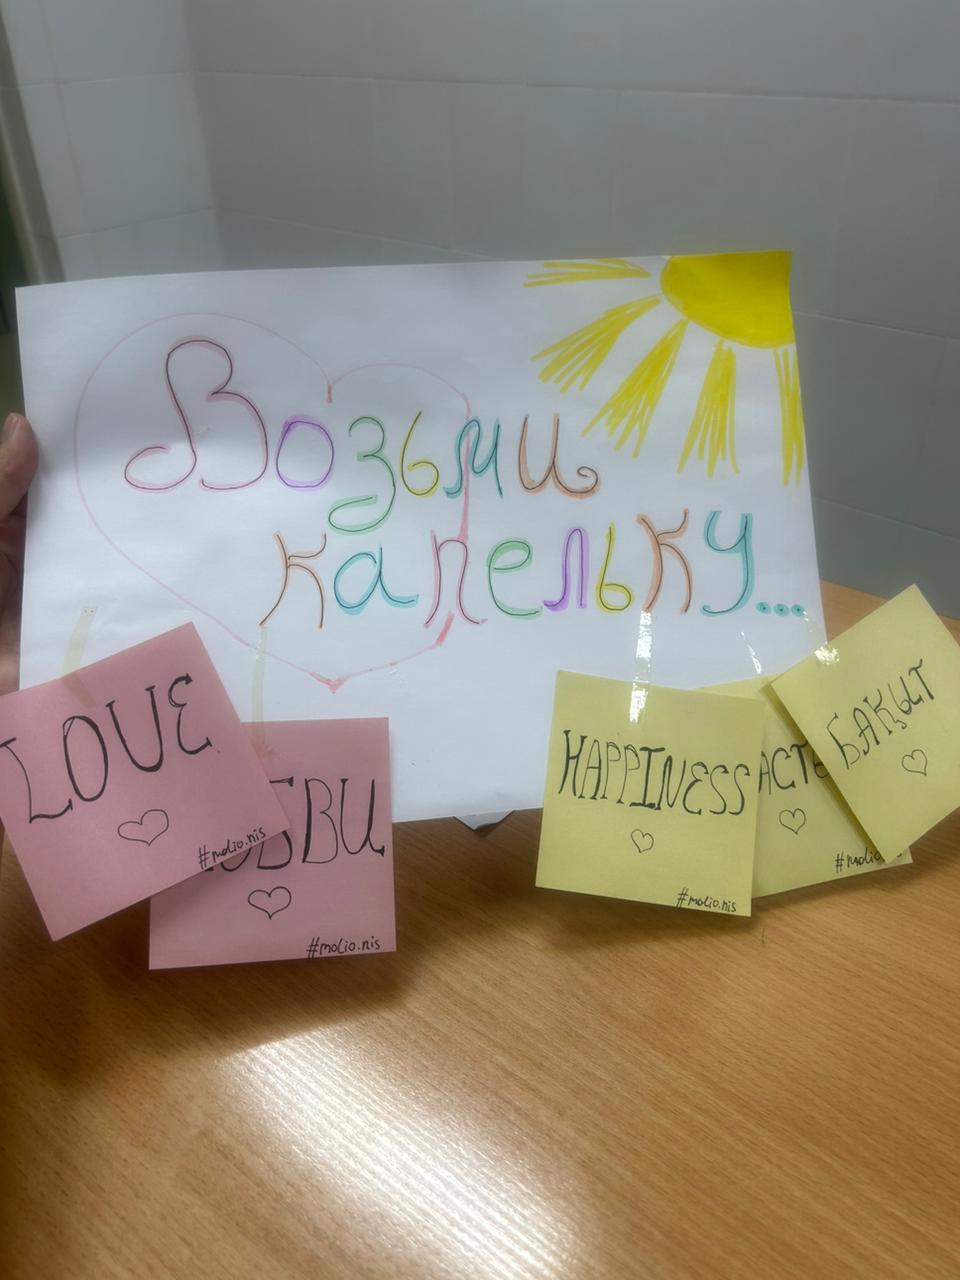 Возьми
капельку...
LOVE
#molio.nis
БВИ
#molio.nis
HAPPINESS
#molio.nis
АСТЬ
#molio
БАҚЫТ